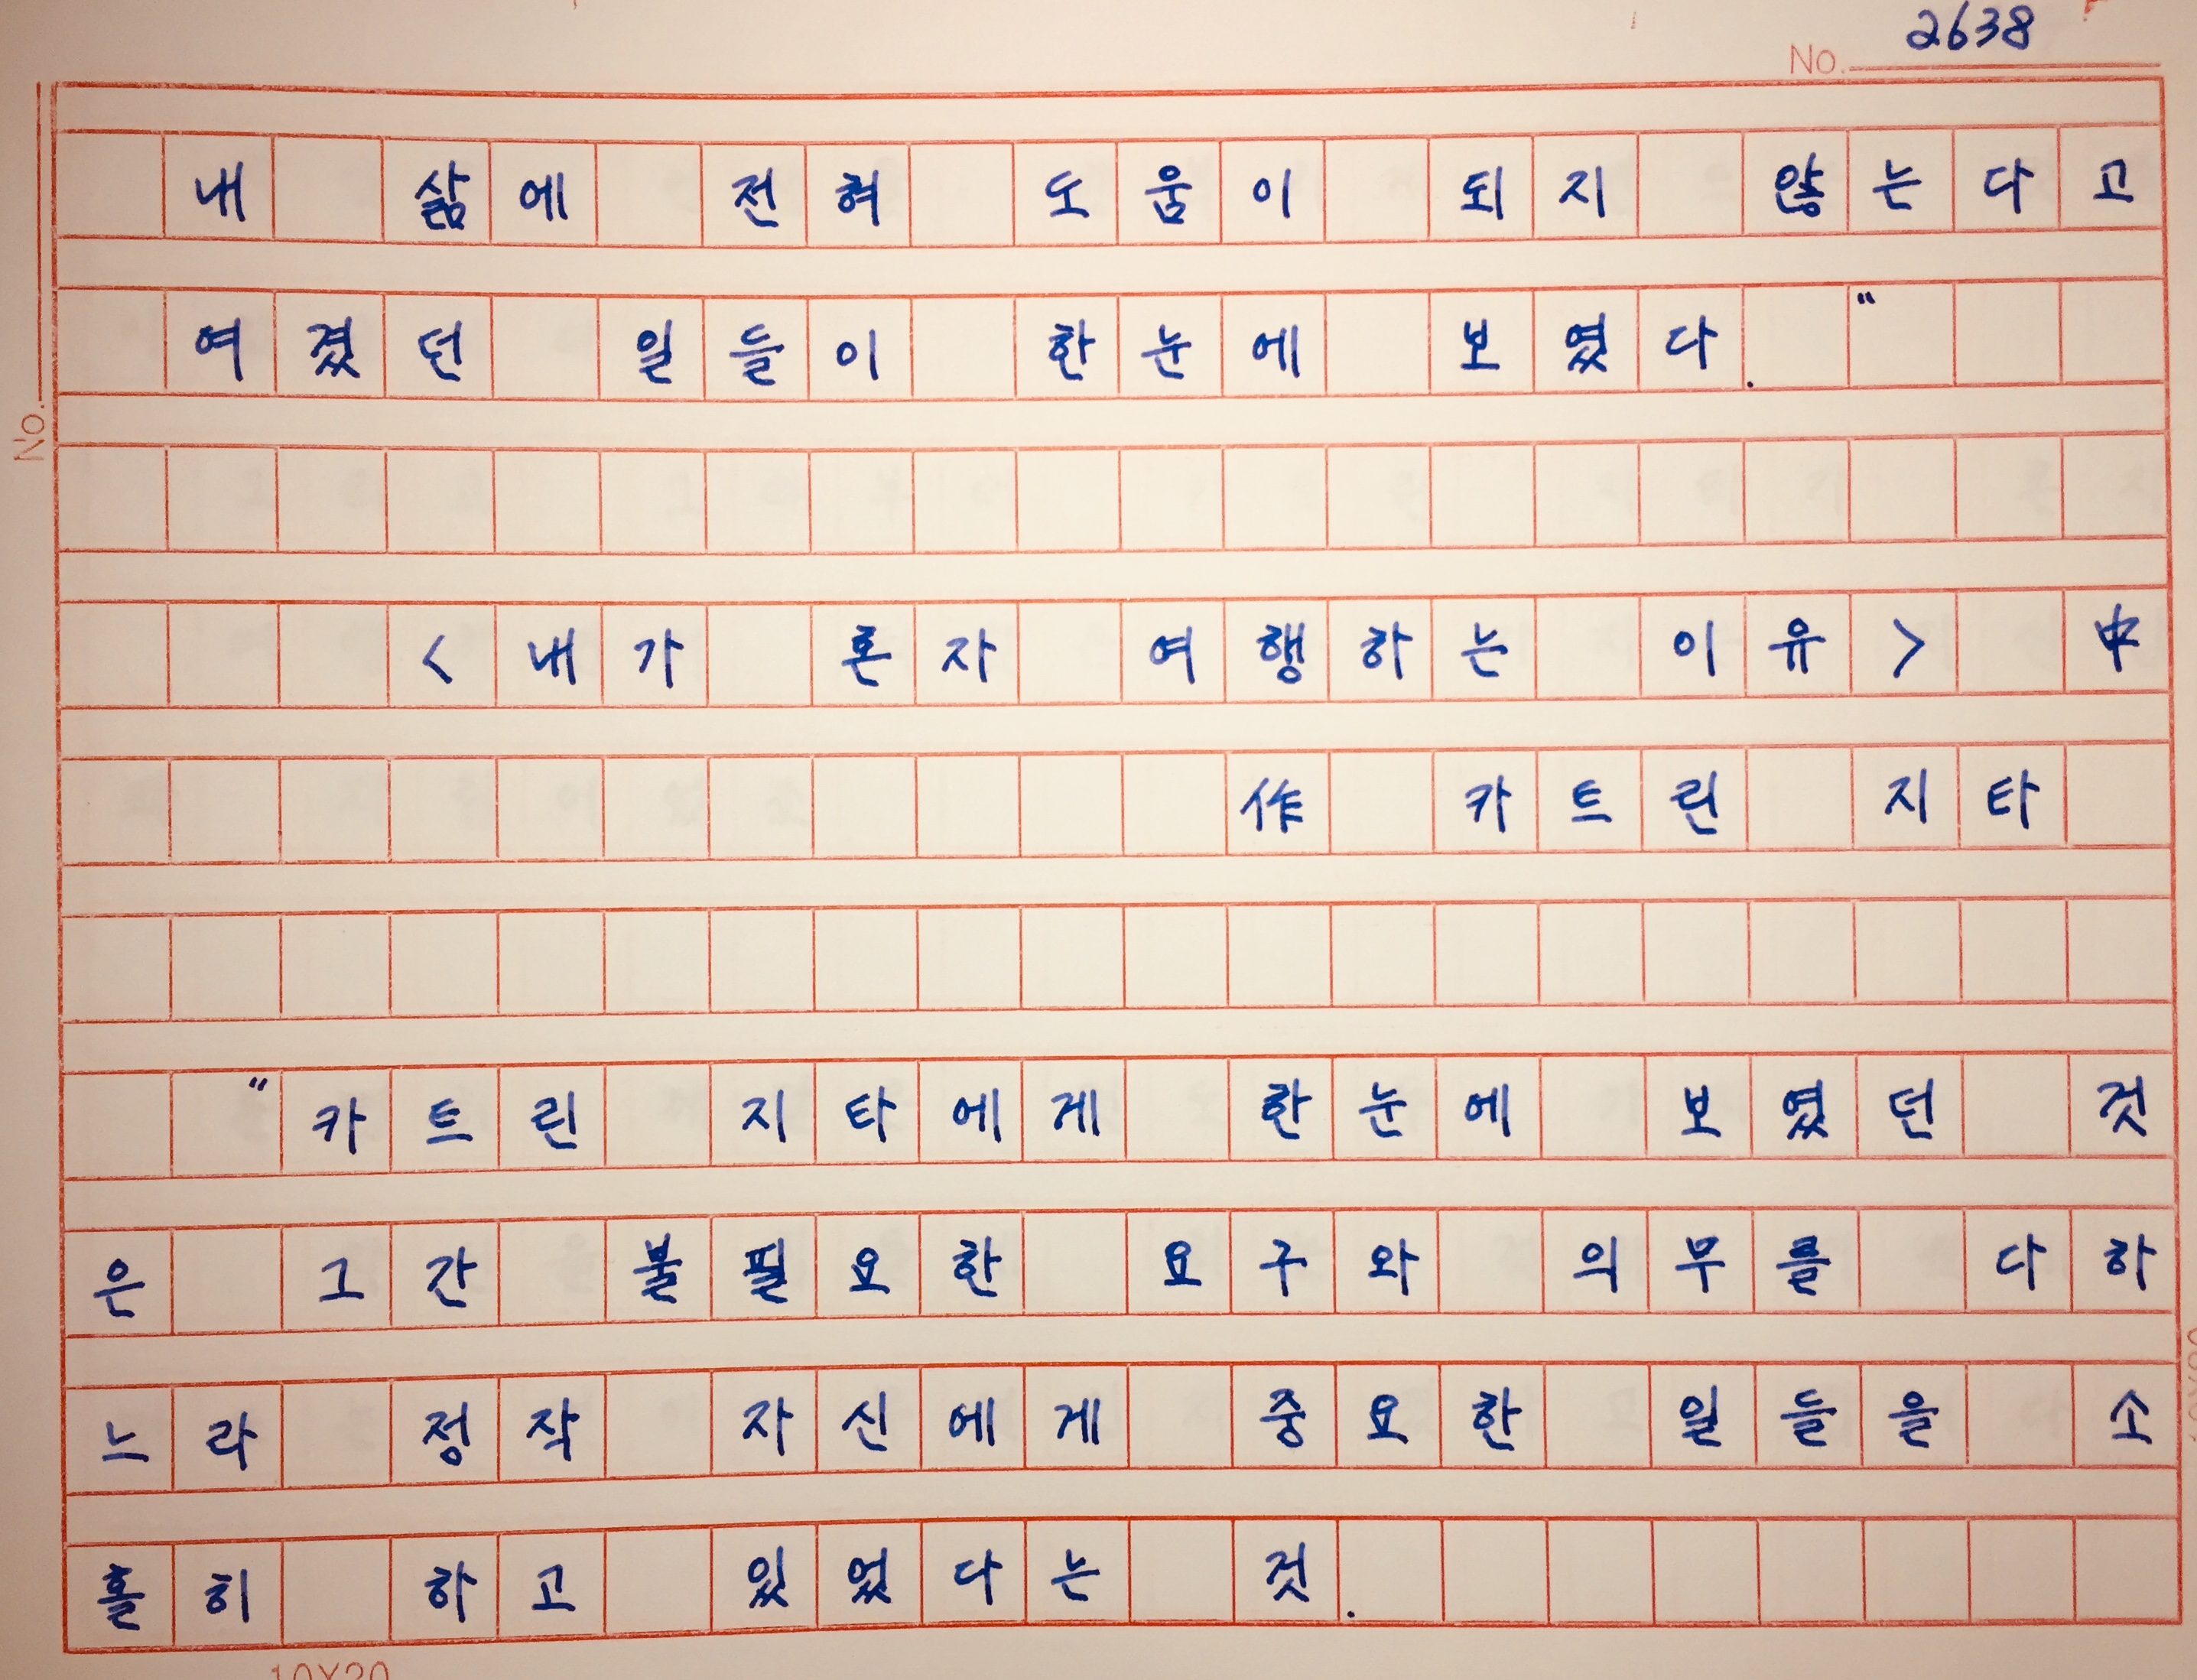 No. 2638
내 삶에 전혀 도움이 되지 않는다고
여겼던 일들이 한눈에 보였다. "
No.
<내가 혼자 여행하는 이유> 中
作 카트린 지타
"카트린 지타에게 한눈에 보였던 것
은 그간 불필요한 요구와 의무를 다하
느라 정작 자신에게 중요한 일들을 소
홀히 하고 있었다는 것.
10X20